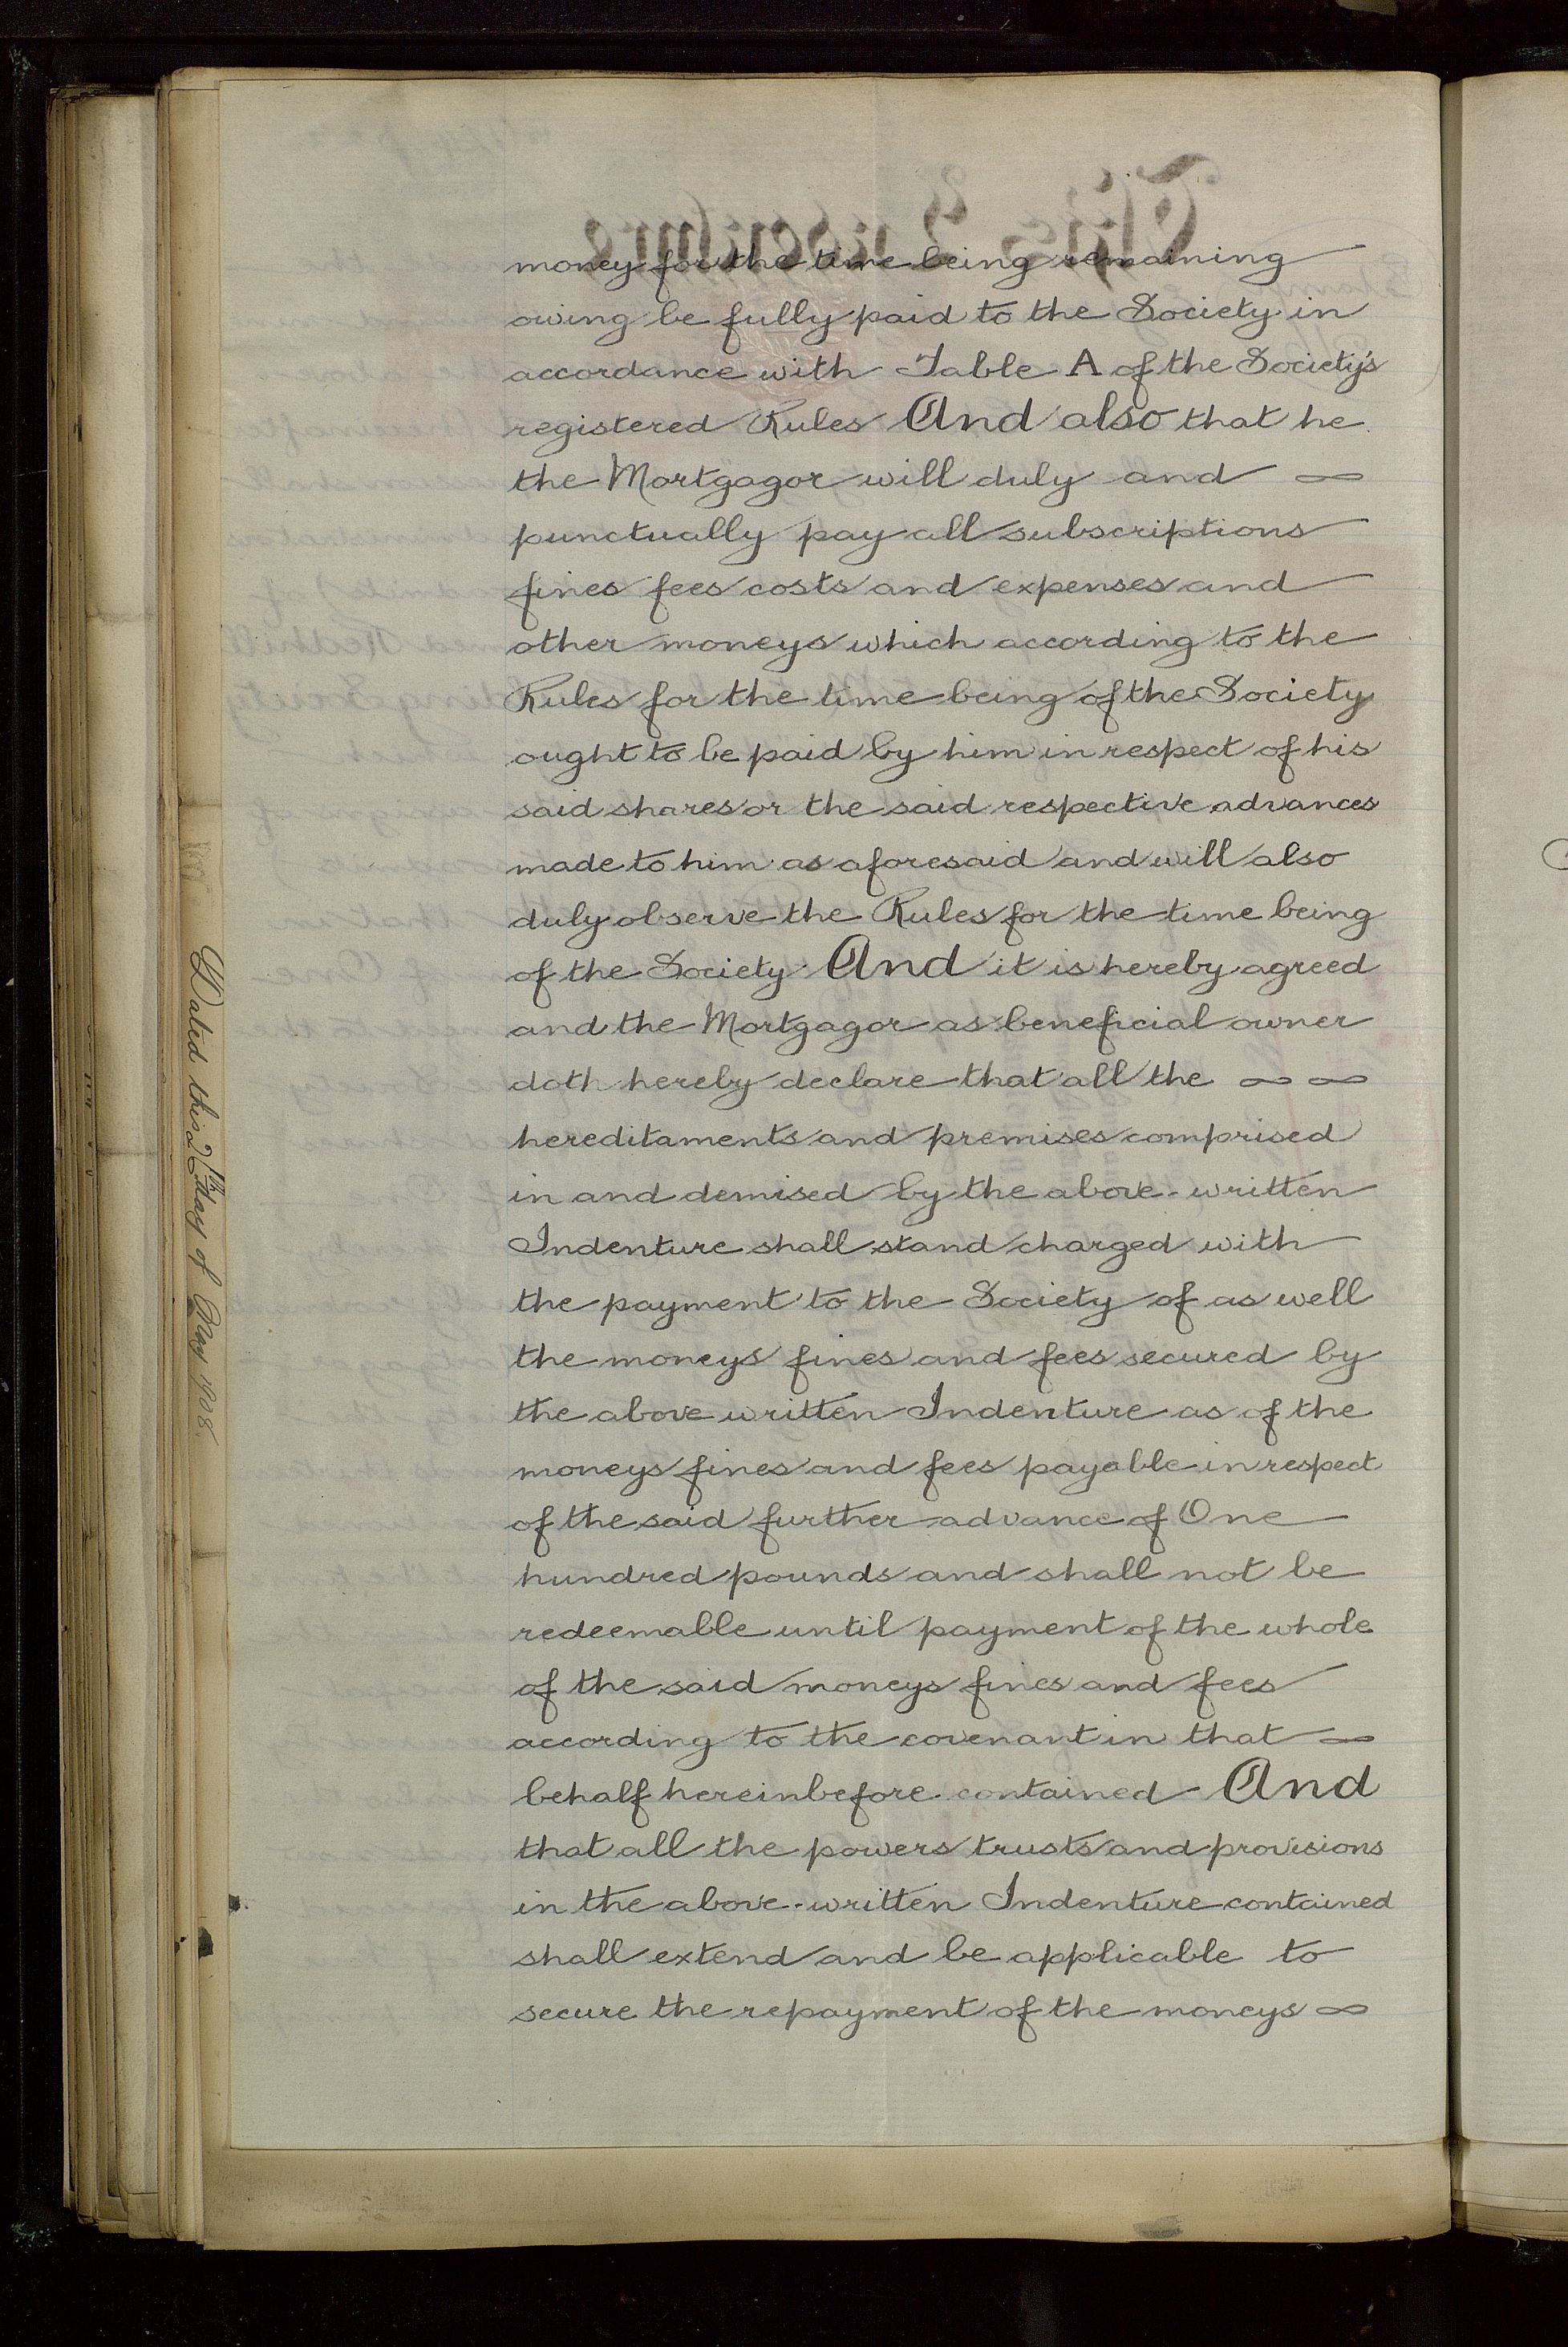 money for the time being remaining
owing be fully paid to the Society in
accordance with Table A of the Society's
registered Rules And also that he
the Mortgagor will duly and
punctually pay all subscriptions
fines fees costs and expenses and
other moneys which according to the
Rules for the time being of the Society
ought to be paid by him in respect of his
said shares or the said respective advances
made to him as aforesaid and will also
duly observe the Rules for the time being
of the Society And it is hereby agreed
and the Mortgagor as beneficial owner
doth hereby declare that all the
hereditaments and premises comprised
in and demised by the above-written
Indenture shall stand charged with
the payment to the Society of as well
the moneys fines and fees secured by
the above written Indenture as of the
moneys fines and fees payable in respect
of the said further advance of One
hundred pounds and shall not be
redeemable until payment of the whole
of the said moneys fines and fees
according to the covenant in that
behalf hereinbefore contained And
that all the powers trusts and provisions
in the above-written Indenture contained
shall extend and be applicable to
secure the repayment of the moneys
Dated this day of May 1908.
This Indenture